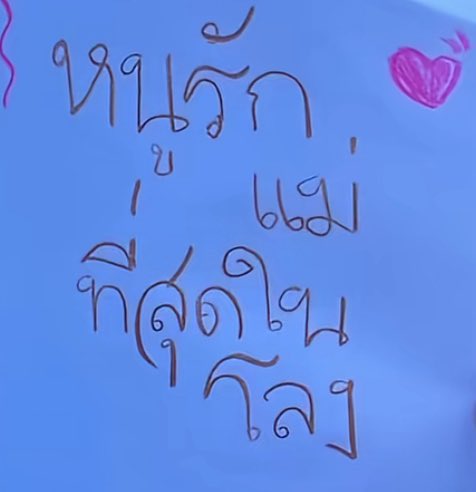 หนูรัก
แม่
ที่สุดใน
โลง